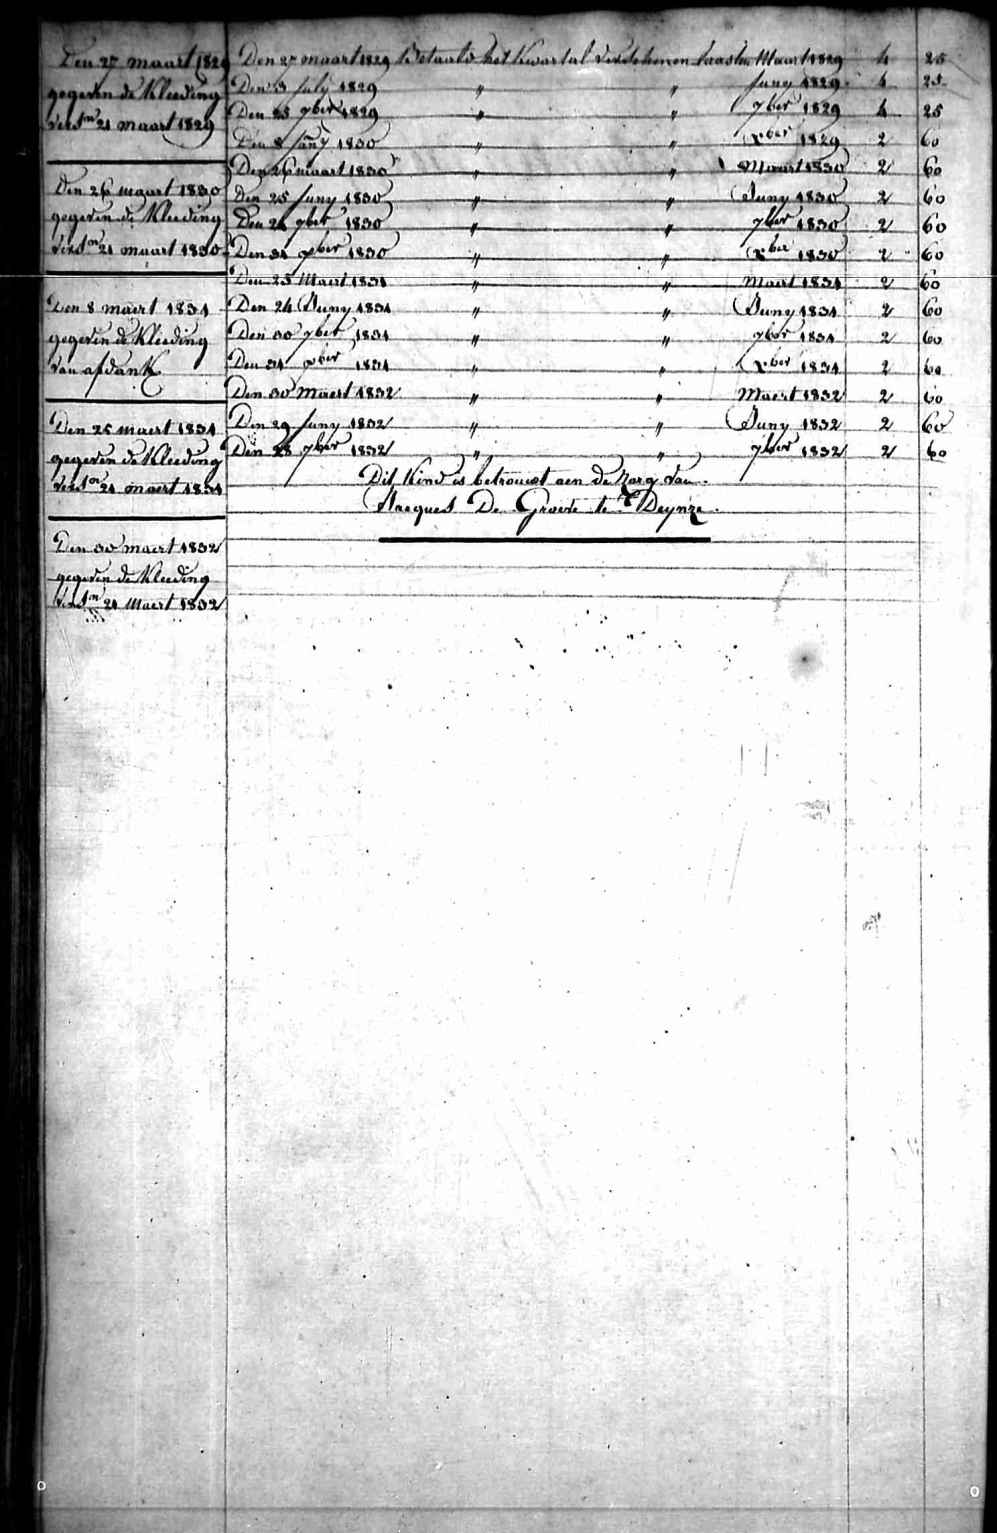 Den 27 maart 1829
gegeven de Kleeding
versn 21 maart 1829
Den 26 maart 1830
gegeven de Kleeding
versn 21 maart 1830
Den 8 maert 1831
gegeven de Kleeding
van afdank
Den 25 maert 1831
gegeven de Kleeding
versn 21 maert 1831
Den 30 maert 1832
gegeven de Kleeding
versn 21 Maert 1832
Den 27 maart 1829 Betaald het Kwartal verschenen laasten Maart 1829 4 25
Den 3 July 1829 " " Juny 1829 4 25
Den 25 7ber 1829 " " 7ber 1829 4 25
Den 8 Jany 1830 " " Xber 1829 2 60
Den 26 maart 1830 " " Maart 1830 2 60
Den 25 Juny 1830 " " Juny 1830 2 60
Den 24 7ber 1830 " " 7ber 1830 2 60
Den 31 Xber 1830 " " Xber 1830 2 60
Den 25 Maert 1831 " " Maart 1831 2 60
Den 24 Juny 1831 " " Juny 1831 2 60
Den 30 7ber 1831 " " 7ber 1831 2 60
Den 31 Xber 1831 " " Xber 1831 2 60
Den 30 Maert 1832 " " Maert 1832 2 60
Den 29 Juny 1832 " " Juny 1832 2 60
Den 28 7ber 1832 " " 7ber 1832 2 60
Dit Kind is betrouwt aen de Zorg van
Jacques De Groote te Deynze.